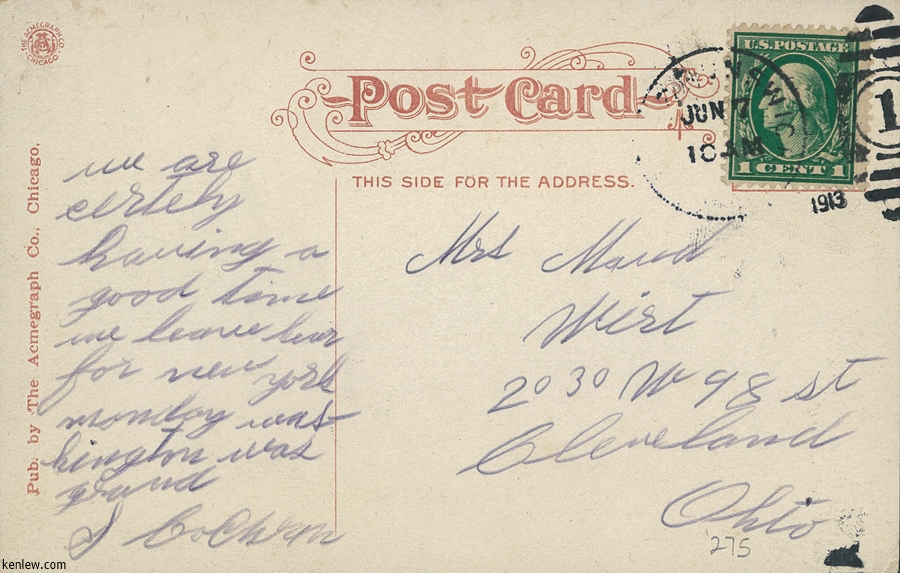 THE ACMEGRAPH CO. CHICAGO
Post Card
THIS SIDE FOR THE ADDRESS.
U.S. POSTAGE
1 CENT 1
JUN 7
10 AM
1913
1
Pub. by The Acmegraph Co., Chicago,
we are
certely
having a
good time
we leave hear
for new york
monday was
hington was
grand
J Cochran
Mrs Maud
Wirt
2030 W 98 st
Cleveland
Ohio
275
kenlew.com